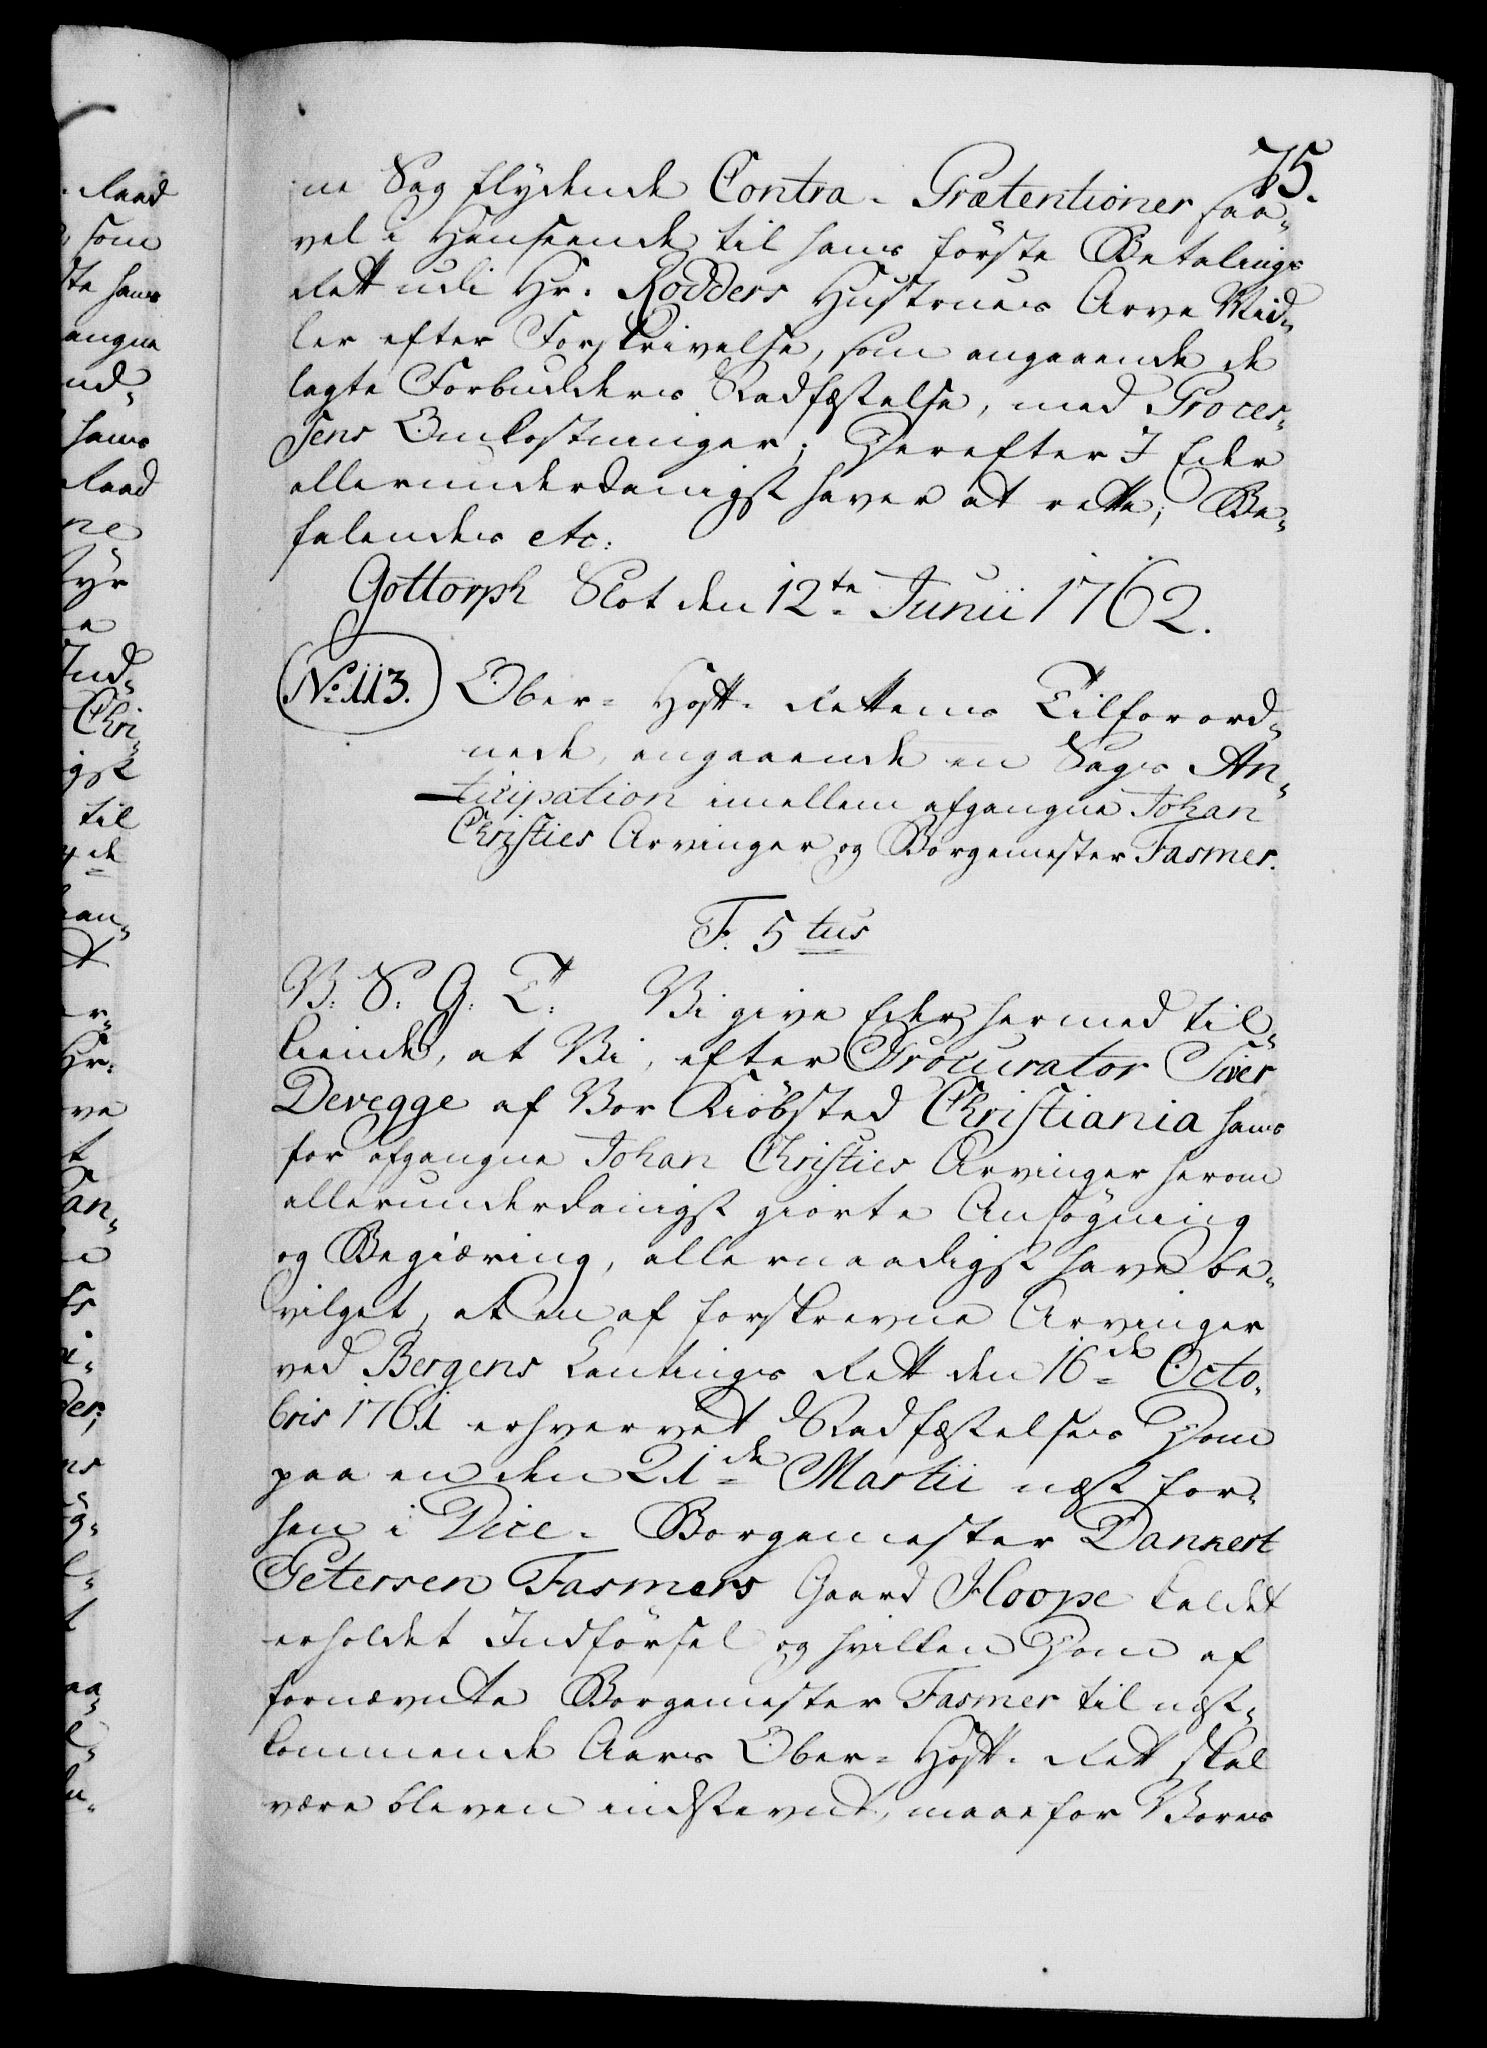 75.
ne Sag flydende Contra-Prætentioner saa-
vel i Henseende til hans förste Betalings
Rett udi Hr. Rodders Hustrues Arve Mid-
ler efter Forskrivelse, som angaaende de
lagte Forbudders Stadfæstelse, med Proces-
sens Omkostninger; Derefter I Eder
allerunderdanigst haver at rette; Be-
falendes etc:
Gottorph Slot den 12te Junii 1762.
No 113. Ober-Hoff-Rettens Tilforord-
nede, angaaende en Sags An-
ticipation imellem afgangne Johan
Christies Arvinger og Borgemester Fasmer.
F. 5tus
V. S. G. T. Vi give Eder hermed til-
kiende, at Vi, efter Procurator Siver
Devegge af Vor Kiöbsted Christiania hans
for afgangne Johan Christies Arvinger herom
allerunderdanigst giorte Ansögning
og Begiæring, allernaadigst have be-
vilget, at en af forskrevne Arvinger
ved Bergens Lautings Rett den 16de Octo-
bris 1761 erhvervet Stadfæstelses Dom
paa en den 21de Martii næst for-
hen i Vice-Borgemester Dankert
Petersen Fasmers Gaard Hoope kaldet
erholdet Indförsel og hvilken Dom af
fornævnte Borgemester Fasmer til næst-
kommende Aars Ober-Hoff-Rett skal
være bleven indstevnt, maae for Vores